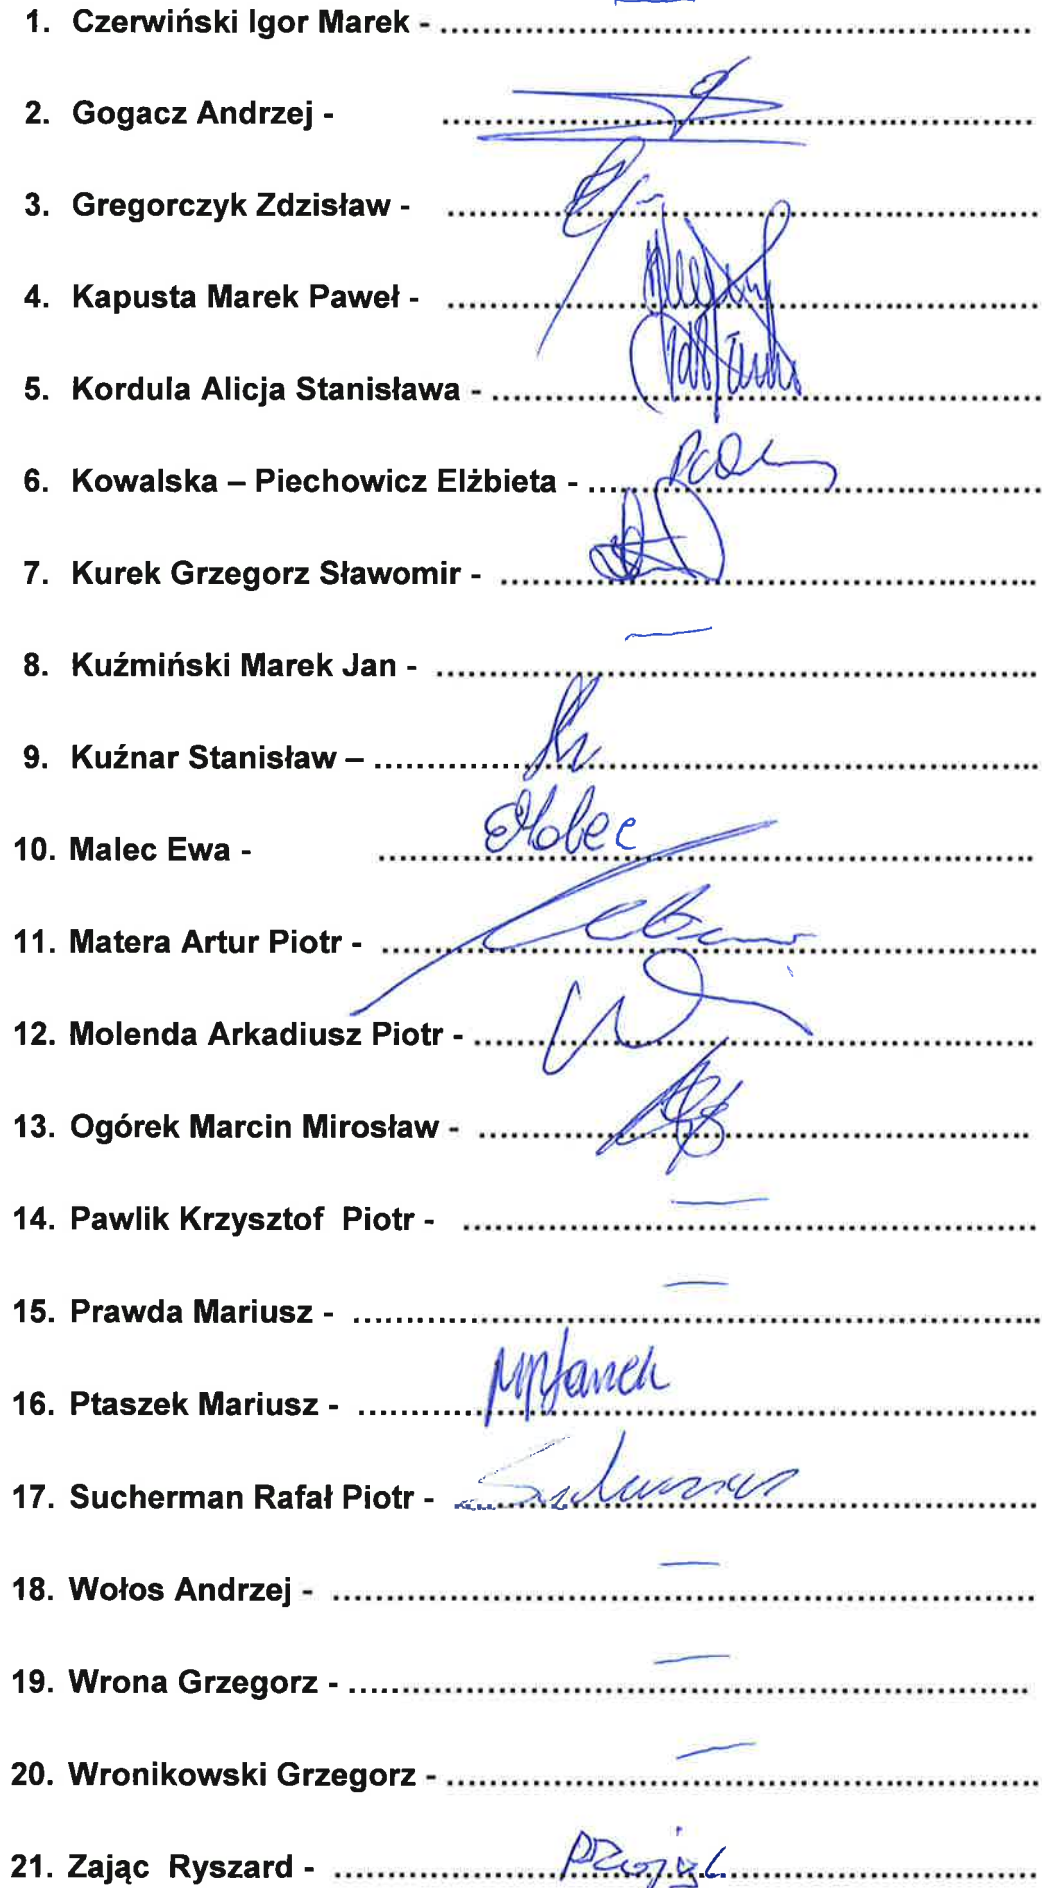 1. Czerwiński Igor Marek - ..............................
2. Gogacz Andrzej - ..............................
3. Gregorczyk Zdzisław - ..............................
4. Kapusta Marek Paweł - ..............................
5. Kordula Alicja Stanisława - ..............................
6. Kowalska – Piechowicz Elżbieta - ..............................
7. Kurek Grzegorz Sławomir - ..............................
8. Kuźmiński Marek Jan - ..............................
9. Kuźnar Stanisław – ..............................
10. Malec Ewa - ..............................
11. Matera Artur Piotr - ..............................
12. Molenda Arkadiusz Piotr - ..............................
13. Ogórek Marcin Mirosław - ..............................
14. Pawlik Krzysztof Piotr - ..............................
15. Prawda Mariusz - ..............................
16. Ptaszek Mariusz - ..............................
17. Sucherman Rafał Piotr - ..............................
18. Wołos Andrzej - ..............................
19. Wrona Grzegorz - ..............................
20. Wronikowski Grzegorz - ..............................
21. Zając Ryszard - ..............................